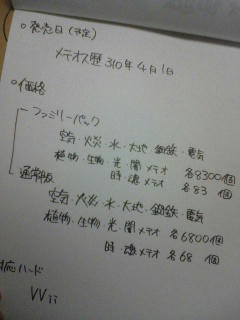 ○発売日(予定)
メテオス歴310年4月1日
○価格
ファミリーパック
空気・火炎・水・大地・鋼鉄・電気
植物・生物・光・闇メテオ 各8300個
時・魂メテオ 各83個
通常版
空気・火炎・水・大地・鋼鉄・電気
植物・生物・光・闇メテオ 各6800個
時・魂メテオ 各68個
対応ハード
VVii